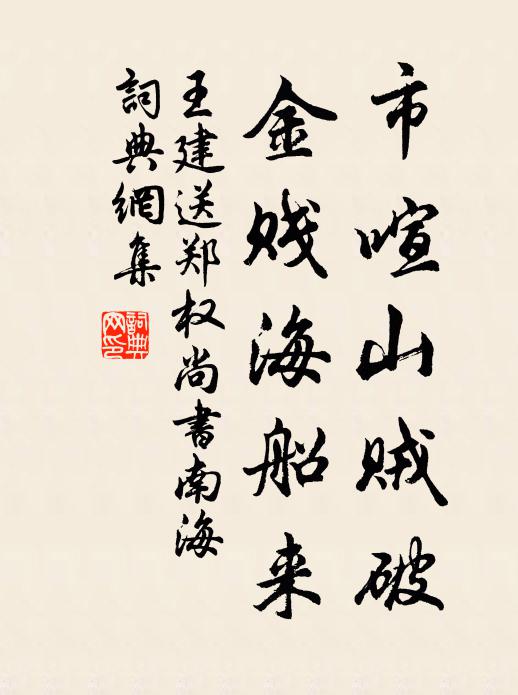 市喧山贼破
金贱海船来
王建送郑权尚书南海
詞典網集
詞典网印